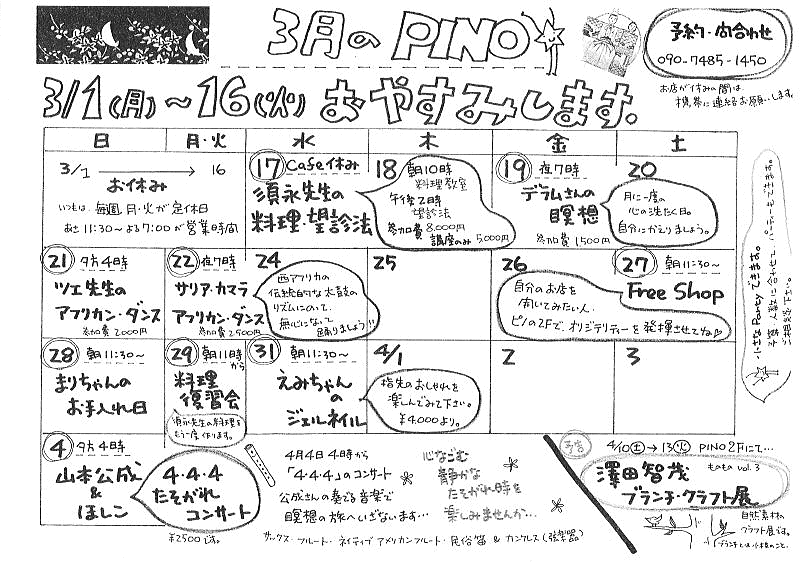 3月のPINO
予約・問合わせ
090-7485-1450
お店が休みの間は、
携帯に連絡お願いします。
3/1(月)〜16(火)おやすみします。
日 月・火 水 木 金 土
3/1 → 16
お休み
いつもは、毎週月・火が定休日
あさ11:30〜よる7:00が営業時間
17 Cafe休み
須永先生の
料理・望診法
18 朝10時
料理教室
午後2時
望診法
参加費8,000円
講座のみ5,000円
19 夜7時
デラムさんの
瞑想
参加費1500円
20
月に一度の
心の洗たく日。
自分にかえりましょう。
21 夕方4時
ツェ先生の
アフリカン・ダンス
参加費2000円
22 夜7時
サリア・カマラ
アフリカン・ダンス
参加費2500円
24
西アフリカの
伝統的な太鼓の
リズムにのって、
無心になって
踊りましょう!!
25
26
自分のお店を
開いてみたい人、
ピノの2Fで、オリジナリティーを発揮させてね
27 朝11:30〜
Free Shop
28 朝11:30〜
まりちゃんの
お手入れ日
29 朝11時から
料理
復習会
須永先生の料理を
もう一度作ります。
31 朝11:30〜
えみちゃん
の
ジェルネイル
4/1
指先のおしゃれを
楽しんでみて下さい。
¥4,000より。
2
3
小さなPartyできます。
ご相談下さい。
4 夕方4時
山本公成
&
ほしこ
4・4・4
たそがれ
コンサート
¥2500です。
4月4日4時から
「4・4・4」のコンサート
公成さんの奏でる音楽で
瞑想の旅へいざないます…
心なごむ
静かな
たそがれ時を
楽しみませんか…
サックス・フルート・ネイティブアメリカンフルート・民俗笛 & カンテレス(弦楽器)
予告 4/10(土)→13(火) PINO 2Fにて…
澤田智茂 もたもた vol.3
ブランチ・クラフト展
自然素材の
クラフト展です。
ブランチとは小枝のこと。